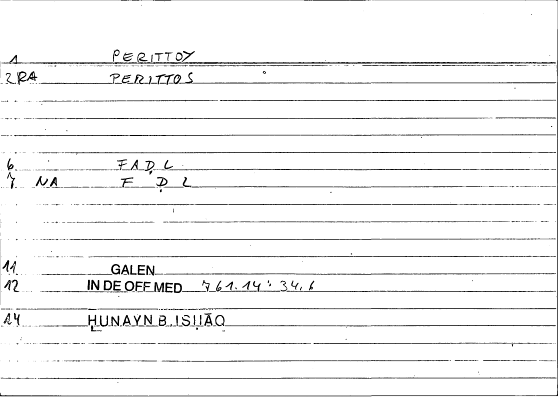 1 PERITTOY
2RA PERITTOS
6 FAḌL
7 NA F Ḍ L
11 GALEN
12 IN DE OFF MED 761.14: 34.6
14 ḤUNAYN B. ISḤĀQ